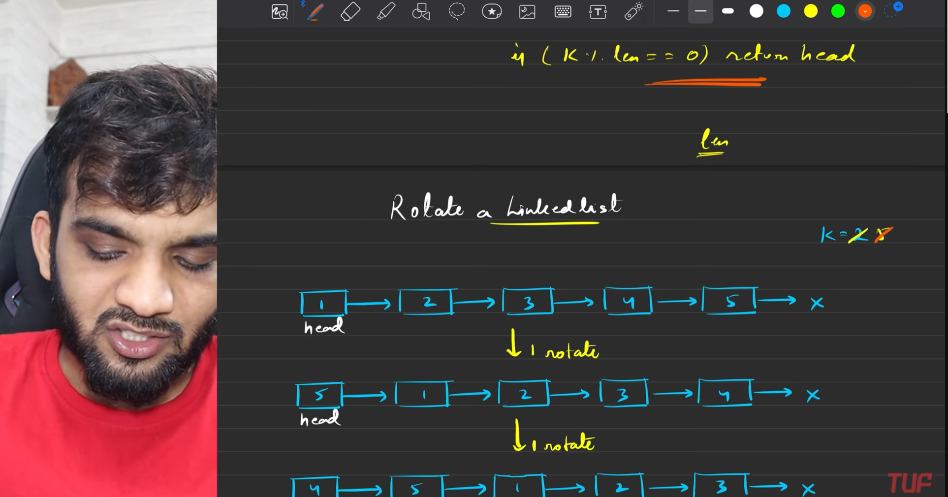 if (K % len == 0) return head
len
Rotate a Linkedlist
K = 2
1 2 3 4 5 x
head
1 rotate
5 1 2 3 4 x
head
1 rotate
4 5 1 2 3 x
TUF